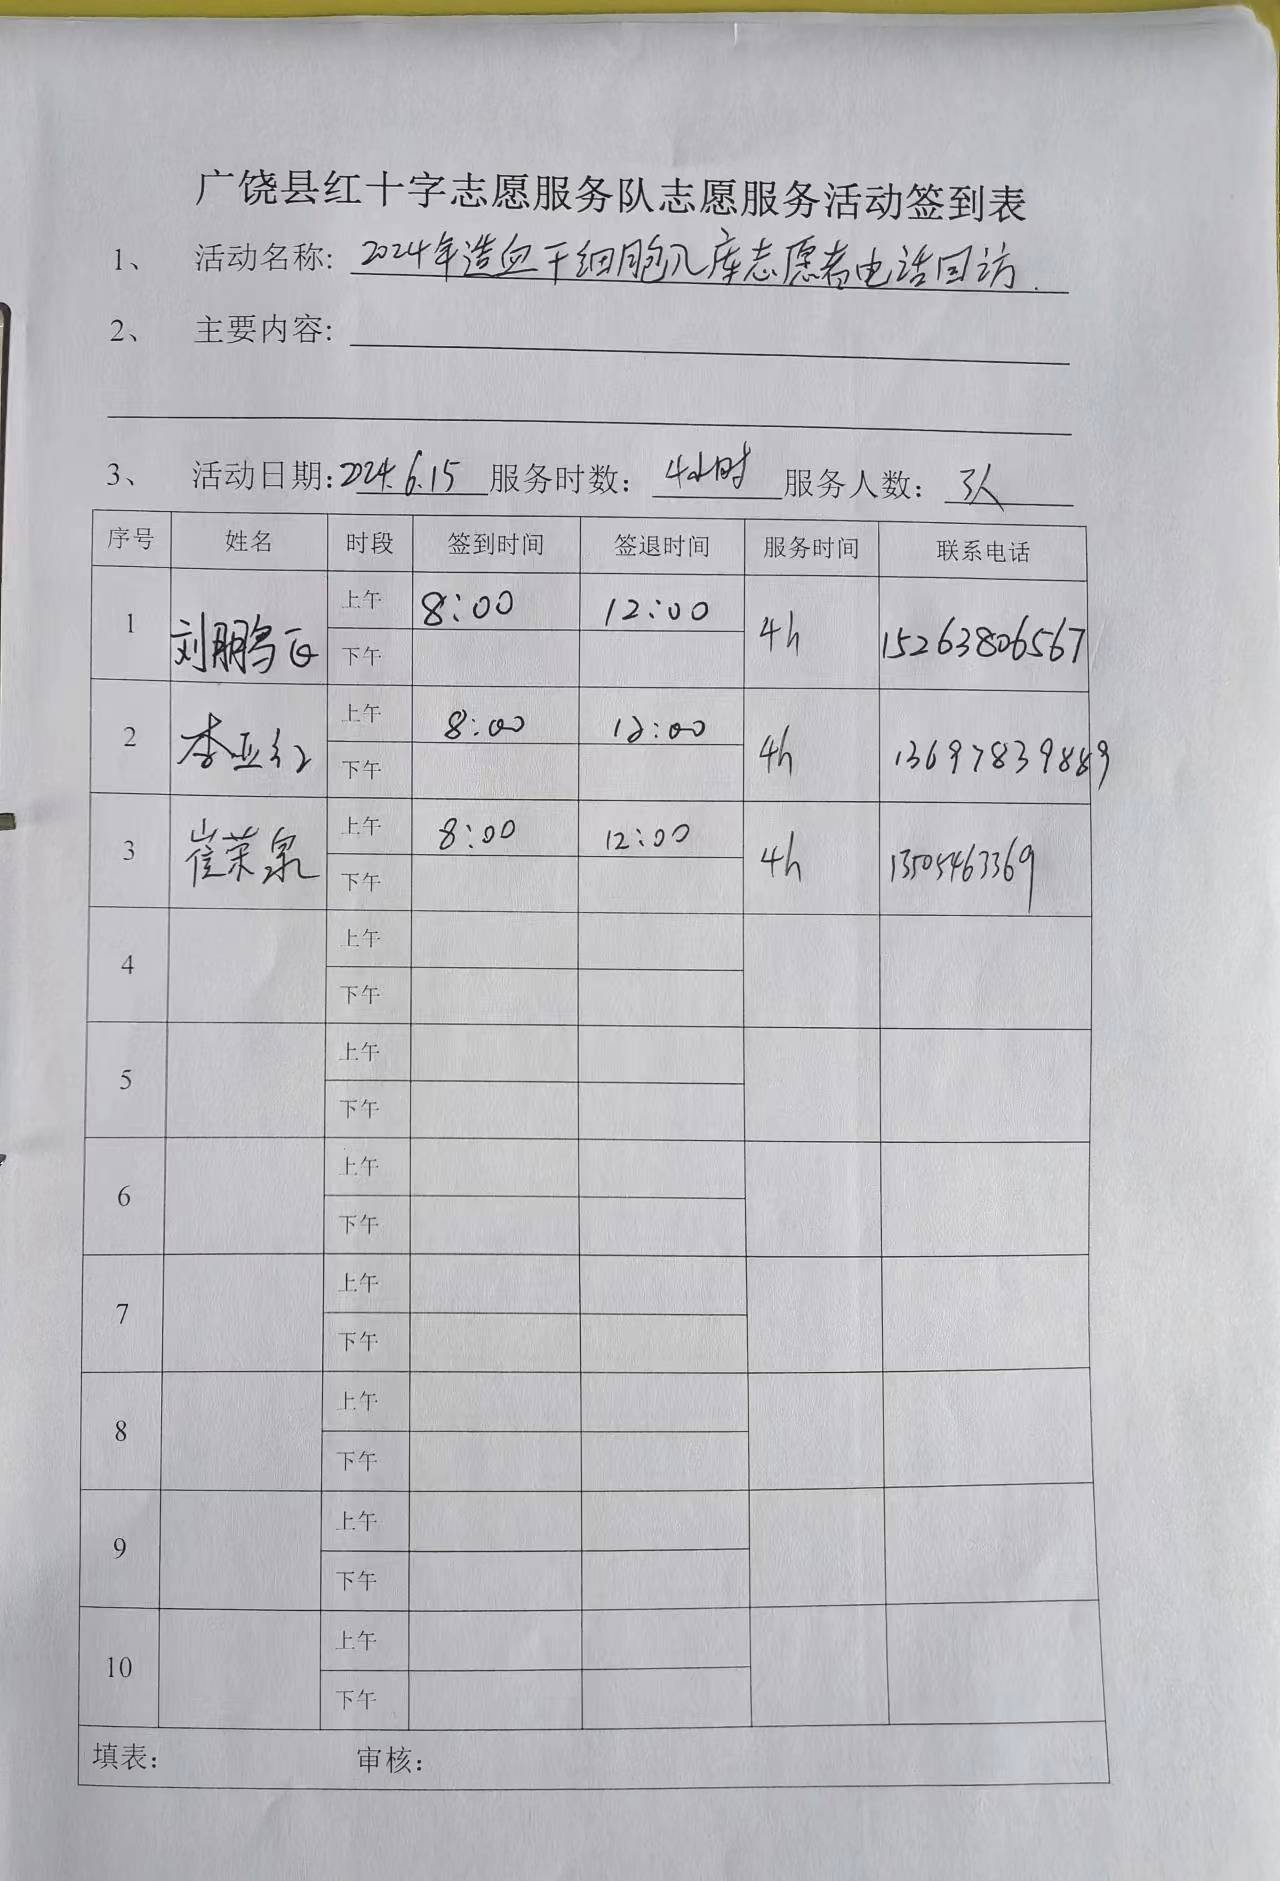 广饶县红十字志愿服务队志愿服务活动签到表
1、 活动名称: 2024年造血干细胞入库志愿者电话回访.
2、 主要内容:
3、 活动日期: 2024.6.15 服务时数: 4小时 服务人数: 3人
序号 姓名 时段 签到时间 签退时间 服务时间 联系电话
1 刘鹏 上午 8:00 12:00 4h 15263806567
下午
2 李亚红 上午 8:00 12:00 4h 13697839889
下午
3 崔荣泉 上午 8:00 12:00 4h 13505463369
下午
4 上午
下午
5 上午
下午
6 上午
下午
7 上午
下午
8 上午
下午
9 上午
下午
10 上午
下午
填表: 审核: